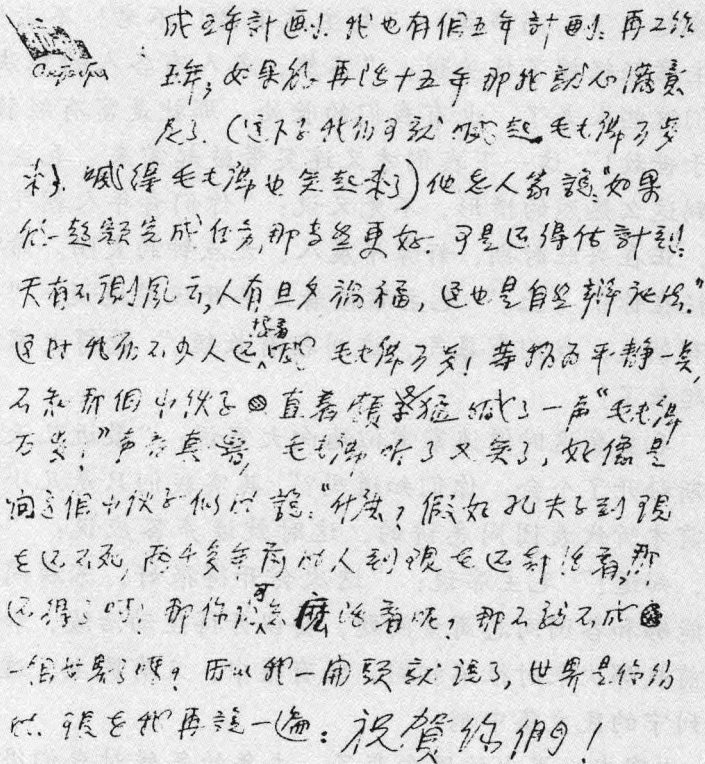 成五年計劃. 我也有個五年計劃. 再工作
五年, 如果能再活十五年那我就心滿意
足了. (這下子我們可就喊起毛主席萬歲
來了. 喊得毛主席也笑起來了) 他老人家說:"如果
能超額完成任务, 那当然更好. 可是还得估計到:
天有不測風云, 人有旦夕祸福, 這也是自然辯証法."
這时我和不少人还接着喊 毛主席万岁! 等稍為平靜一点,
不知那個小伙子 直着頸 猛喊了一声"毛主席
万岁!"声音真響, 毛主席听了又笑了, 好像是
向這個小伙子似的說:"什么? 假如孔夫子到現
在还不死, 两千多年前的人到現在还都活着, 那
还得了吗! 那你可怎麼活着呢? 那不就不成
一個世界了嗎? 所以我一開頭就說了, 世界是你們
的. 現在我再說一遍: 祝賀你們!